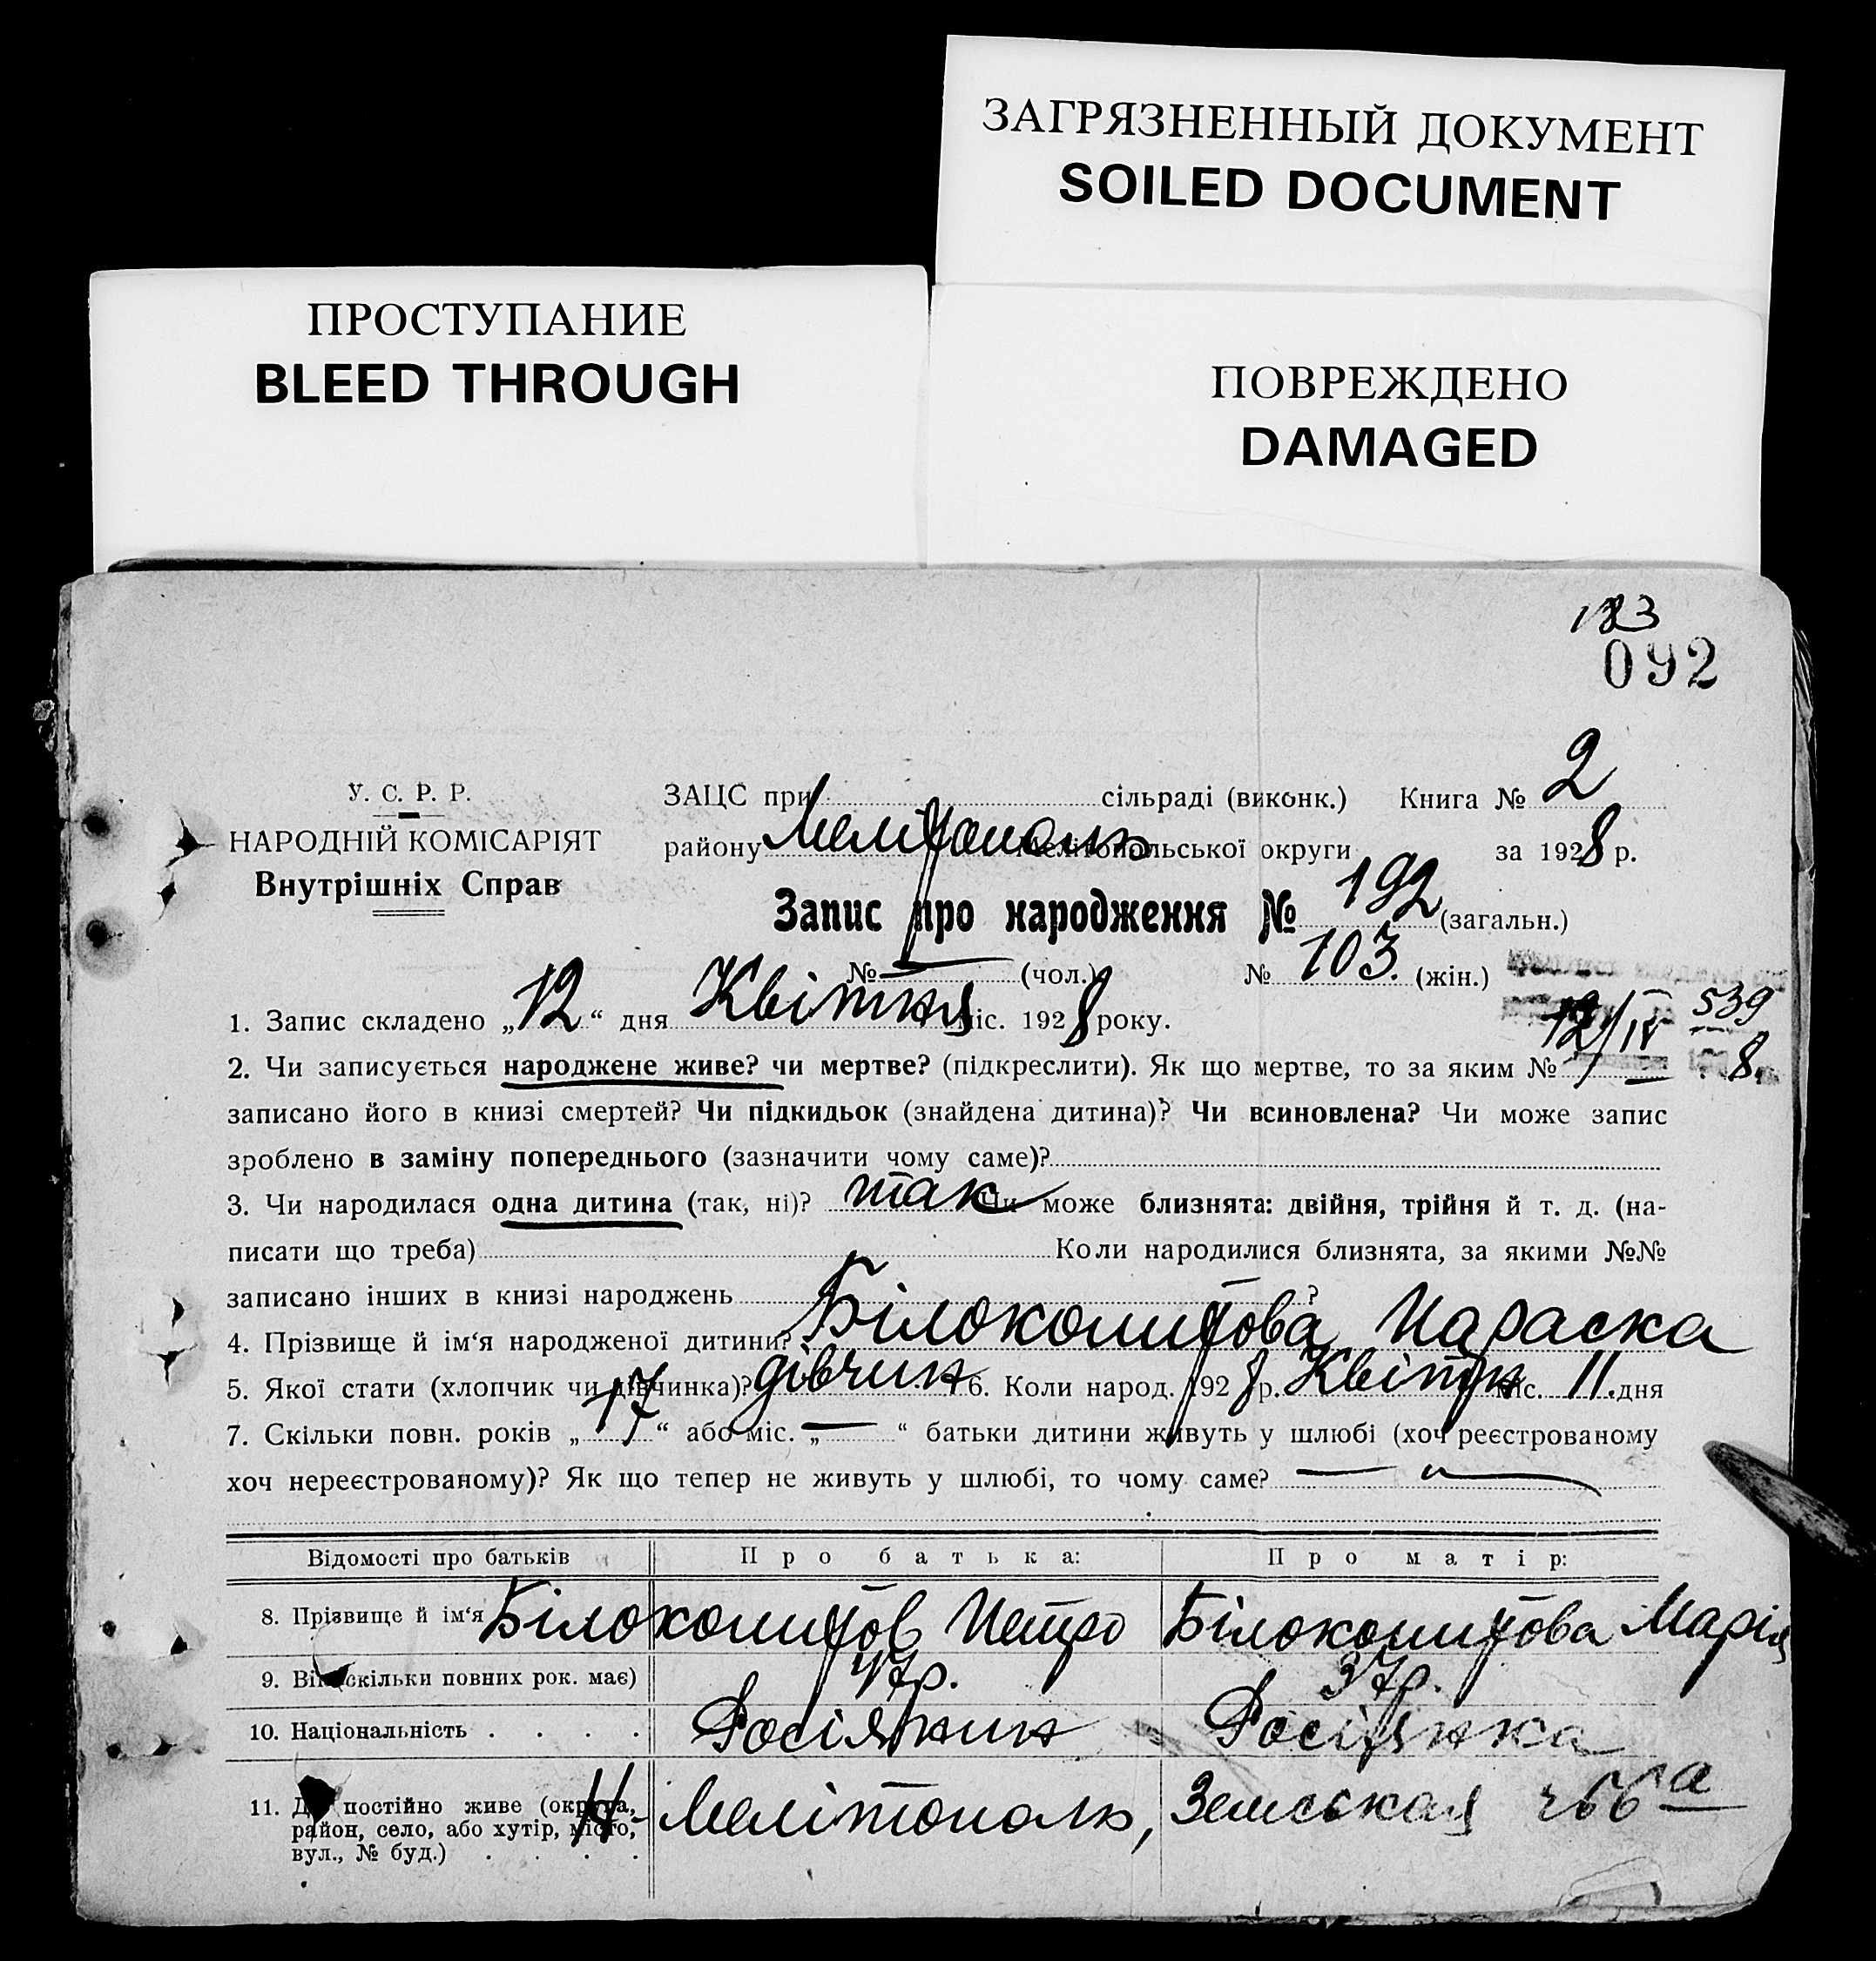 ЗАГРЯЗНЕННЫЙ ДОКУМЕНТ
SOILED DOCUMENT
ПРОСТУПАНИЕ
BLEED THROUGH
ПОВРЕЖДЕНО
DAMAGED
092
У. С. Р. Р.
НАРОДНІЙ КОМІСАРІЯТ
Внутрішніх Справ
ЗАЦС при сільраді (виконк.) Книга № 2
району Мелітополь Мелітопольської округи за 1928 р.
Запис про народження № 192 (загальн.)
№ — (чол.) № 103. (жін.)
1. Запис складено „12“ дня Квітня міс. 1928 року. 12/IV 539
2. Чи записується народжене живе? чи мертве? (підкреслити). Як що мертве, то за яким № — 8.
записано його в книзі смертей? Чи підкидьок (знайдена дитина)? Чи всиновлена? Чи може запис
зроблено в заміну попереднього (зазначити чому саме)?
3. Чи народилася одна дитина (так, ні)? так Чи може близнята: двійня, трійня й т. д. (на-
писати що треба) Коли народилися близнята, за якими №№
записано інших в книзі народжень ?
4. Прізвище й ім‘я народженої дитини? Білокопитова Параска
5. Якої стати (хлопчик чи дівчинка)? дівчин 6. Коли народ. 1928 р. Квітн міс. 11. дня
7. Скільки повн. років „17“ або міс. „—“ батьки дитини живуть у шлюбі (хоч реєстрованому
хоч нереєстрованому)? Як що тепер не живуть у шлюбі, то чому саме? —
Відомості про батьків Про батька: Про матір:
8. Прізвище й ім‘я Білокопитов Петро Білокопитова Марія
9. Вік (скільки повних рок. має) 47р. 37р.
10. Національність . . . . Росіянин Росіянка
11. Де постійно живе (округа,
район, село, або хутір, місто,
вул., № буд.) . . . . М-Мелітополь, Земськая 266 а